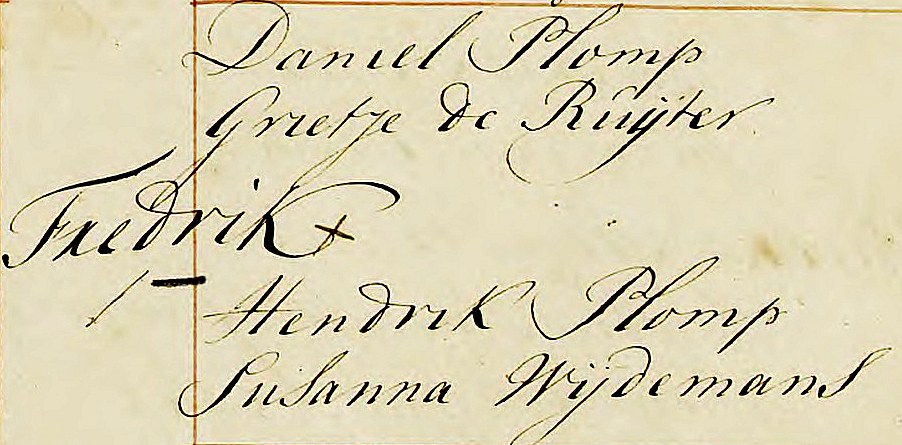 Daniel Plomp
Grietje de Ruijter
Fredrik +
Hendrik Plomp
Susanna Wijdemans